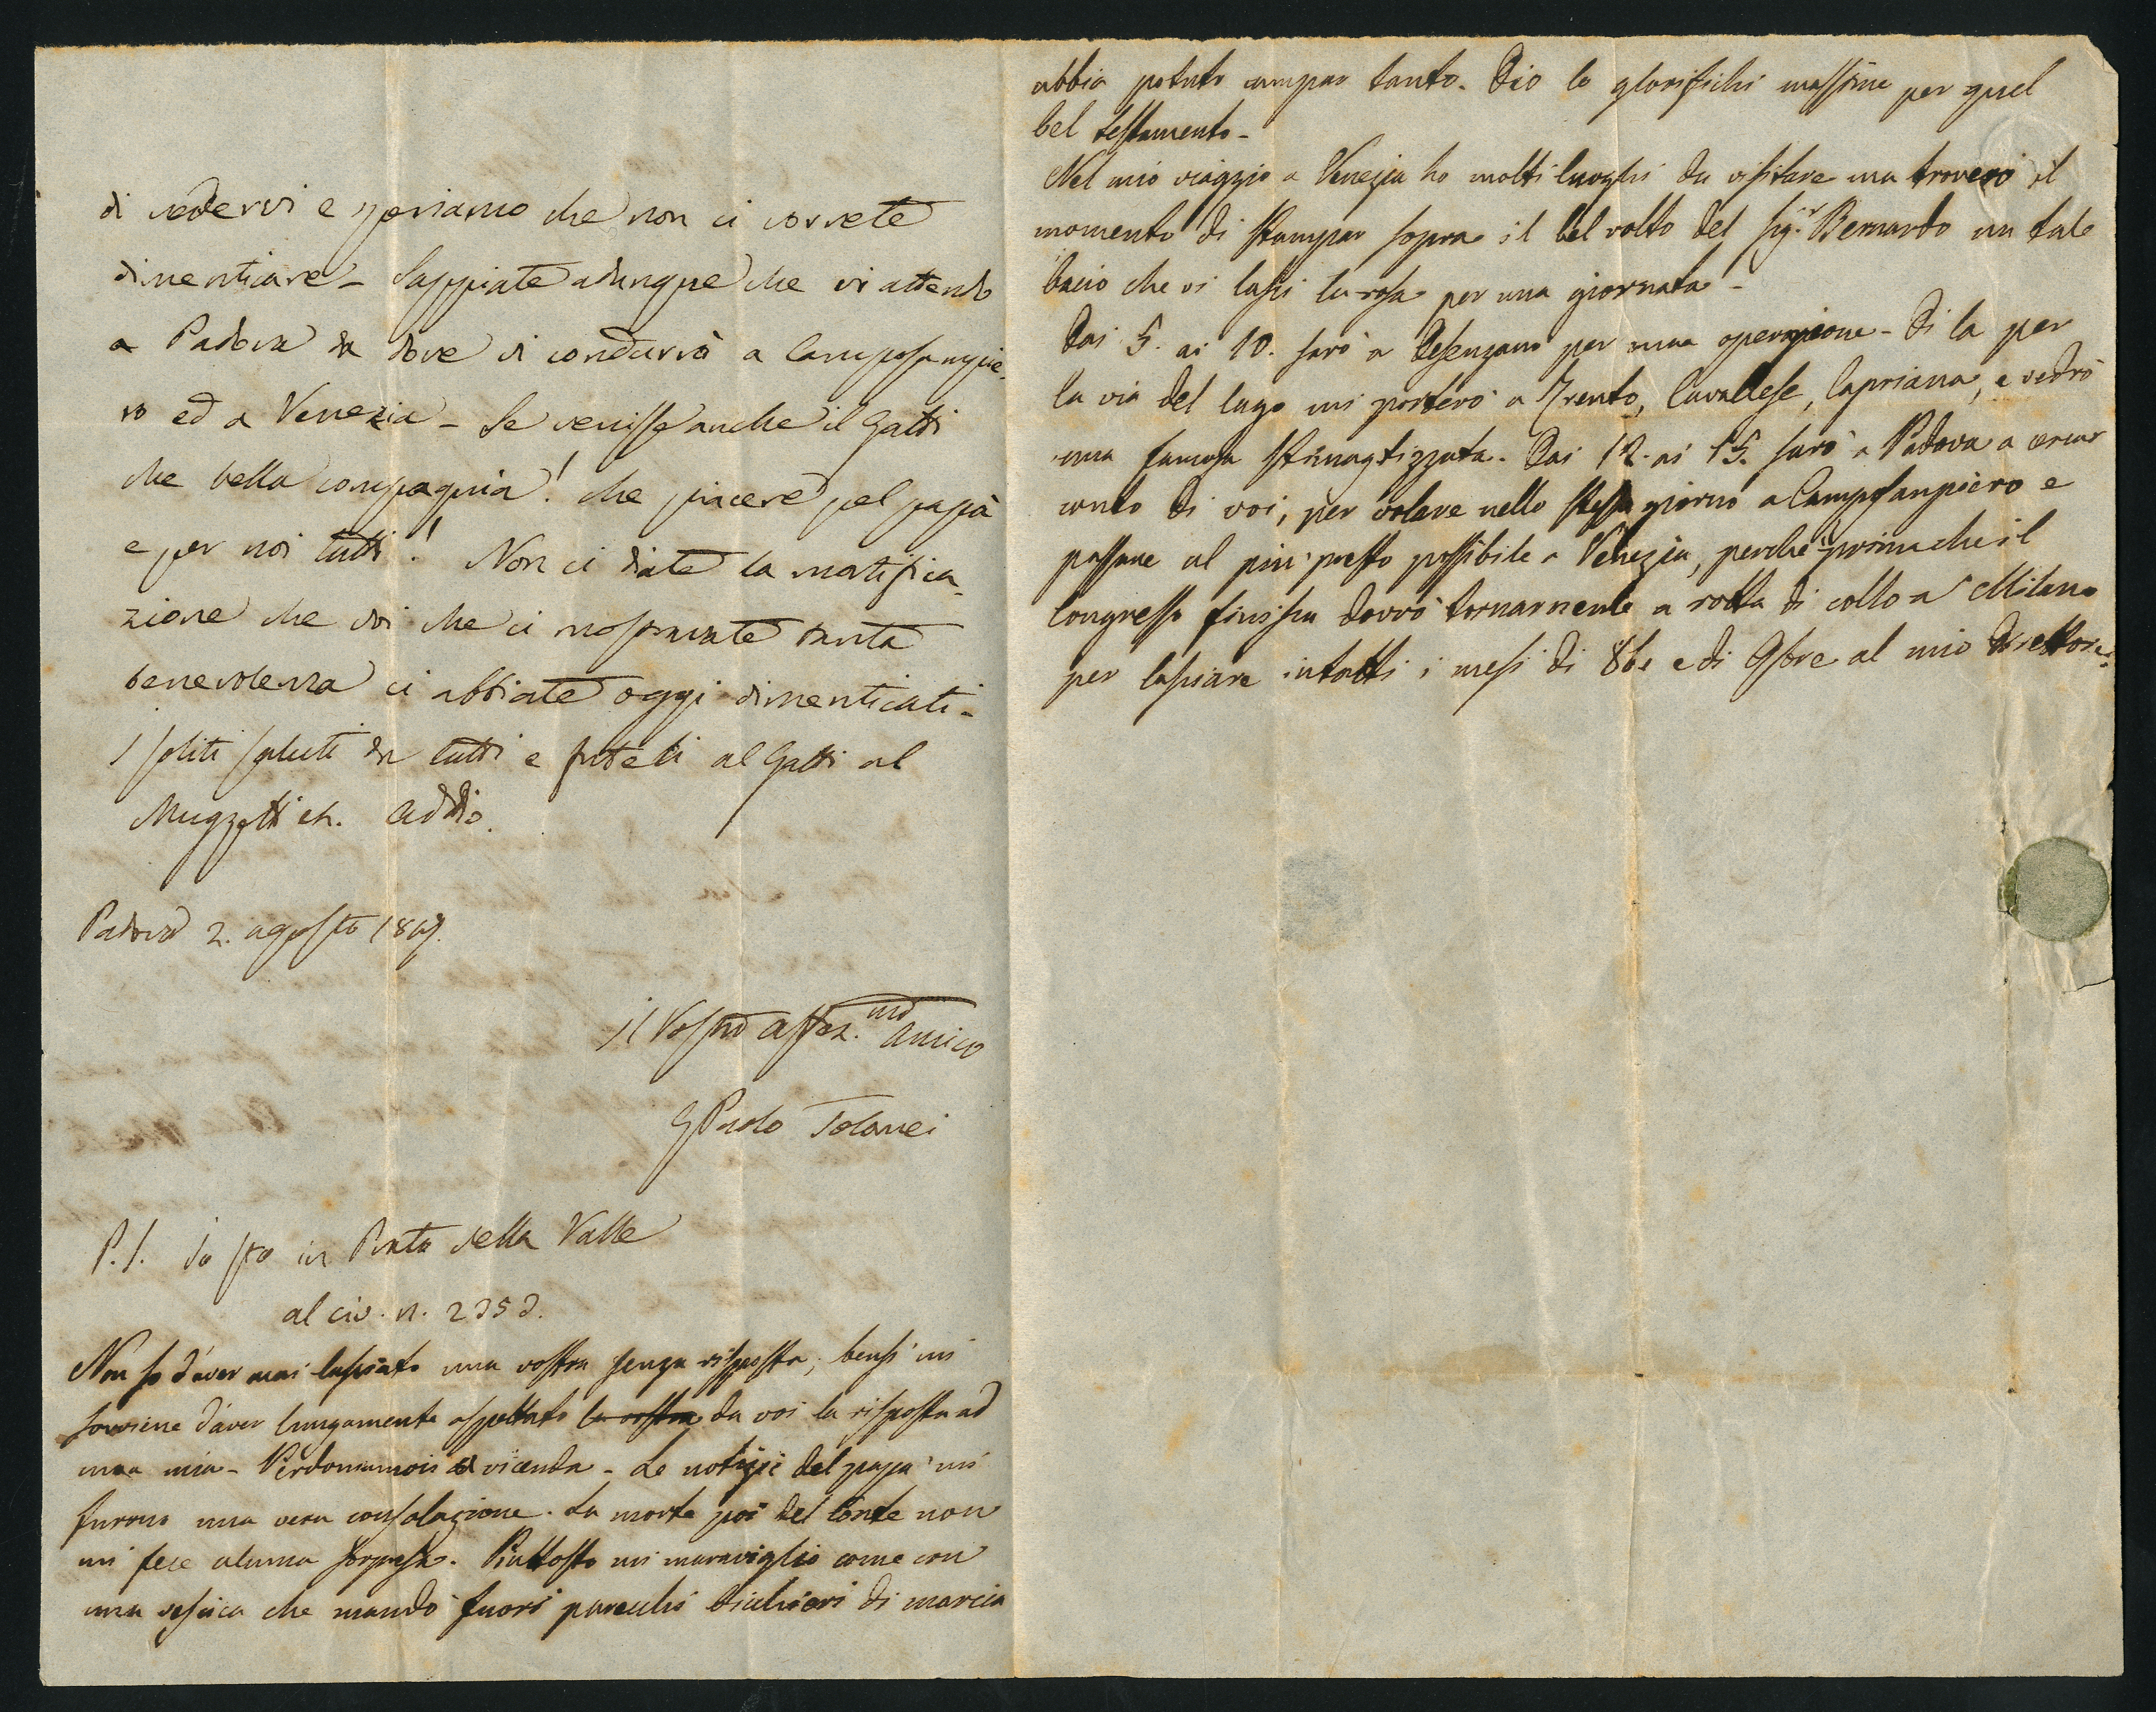 di vedervi e speriamo che non ci vorrete
dimenticare - Sappiate adunque che vi attendo
a Padova da dove vi condurrò a Camposampie-
ro ed a Venezia - Se venisse anche il Gatti
che bella compagnia! che piacere pel papà
e per noi tutti! Non ci date la mortifica-
zione che voi che ci mostravate tanta
benevolenza ci abbiate oggi dimenticati -
I soliti saluti da tutti e fateli al Gatti al
addio.
Padova 2. agosto 1847.
Il Vostro affez.mo amico
GPaolo Tolomei
P.S. io sto in Prato della Valle
al civ. n. 2353.
Non so d'aver mai lasciato una vostra senza risposta; bensì mi
sovviene d'aver lungamente aspettato la vostra da voi la risposta ad
una mia - Perdoniamoci a vicenda - Le notizie del papà mi
furono una vera consolazione. La morte poi del Conte non
mi fece alcuna sorpresa. Piuttosto mi maraviglio come con
una vescica che mandò fuori parecchi bicchieri di marcia
abbia potuto campar tanto. Dio lo glorifichi massime per quel
bel testamento -
Nel mio viaggio a Venezia ho molti luoghi da visitare ma troverò il
momento di stampar sopra il bel volto del Sigr. Bernardo un tale
bacio che vi lasci la rosa per una giornata -
Dai 5. ai 10. sarò a Desenzano per una operazione - Di la per
la via del lago mi porterò a Trento, Cavalese, Capriana, e vedrò
una famosa stimagtizzata. Dai 12. ai 15. sarò a Padova a cercar
conto di voi, per volare nello stesso giorno a Camposanpiero e
passare al più presto possibile a Venezia, perchè prima che il
Congresso finisca dovrò tornarmene a rotta di collo a Milano
per lasciare intatti i mesi di 8be e di 9bre al mio Direttore.